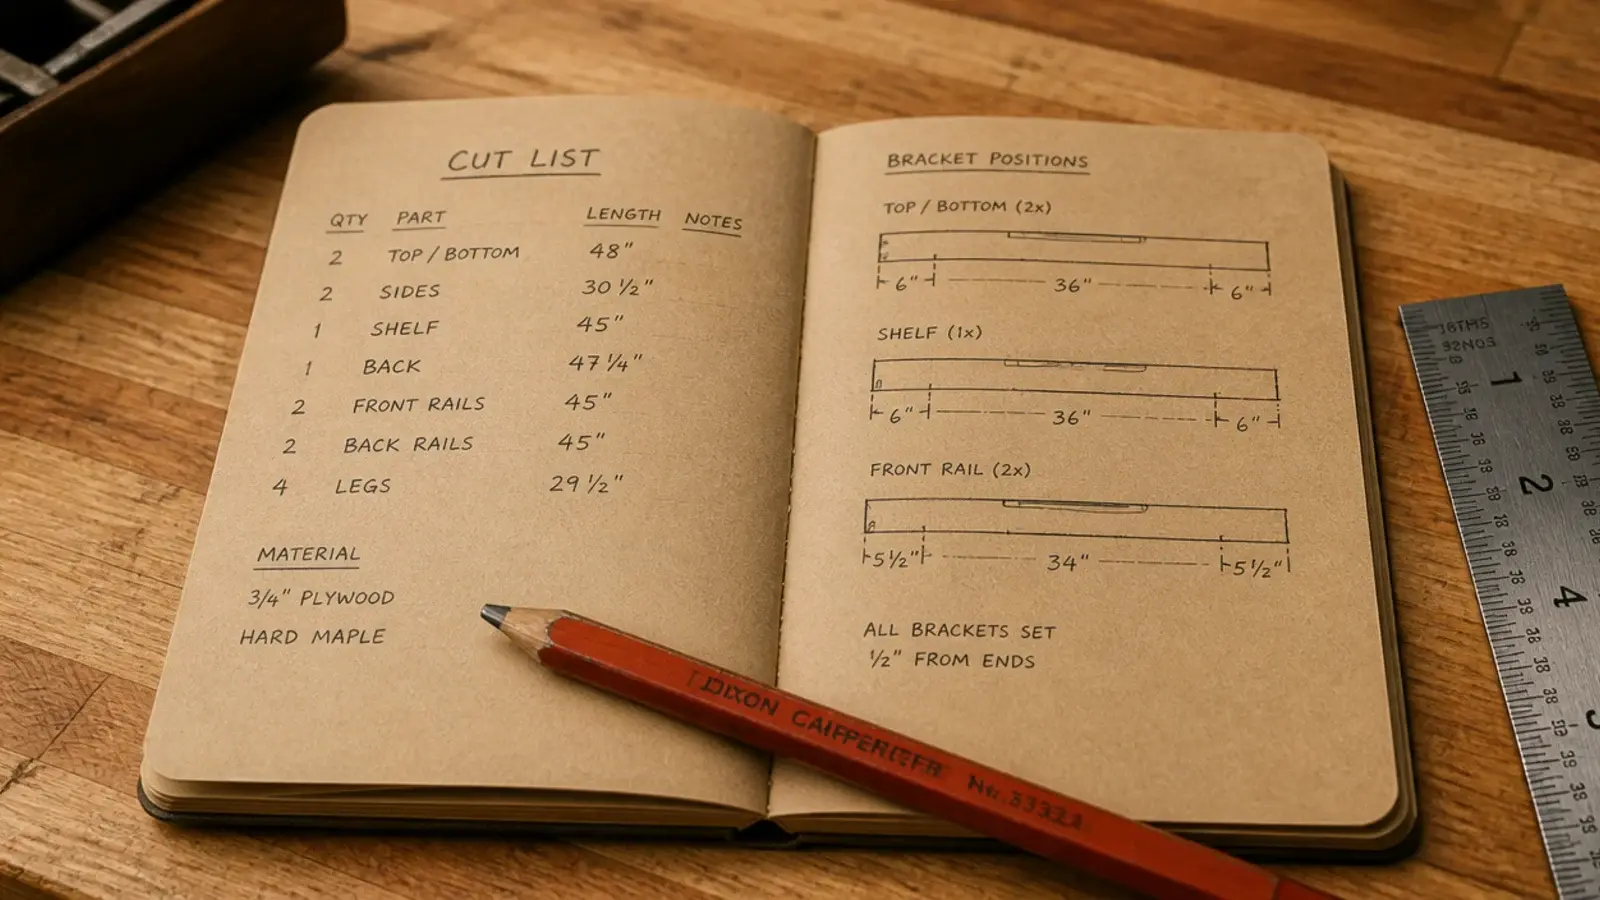 CUT LIST
QTY PART LENGTH NOTES
2 TOP / BOTTOM 48"
2 SIDES 30 1/2"
1 SHELF 45"
1 BACK 47 1/4"
2 FRONT RAILS 45"
2 BACK RAILS 45"
4 LEGS 29 1/2"
MATERIAL
3/4" PLYWOOD
HARD MAPLE
BRACKET POSITIONS
TOP / BOTTOM (2x)
6" 36" 6"
SHELF (1x)
6" 36" 6"
FRONT RAIL (2x)
5 1/2" 34" 5 1/2"
ALL BRACKETS SET
1/2" FROM ENDS
DIXON
1
2
4